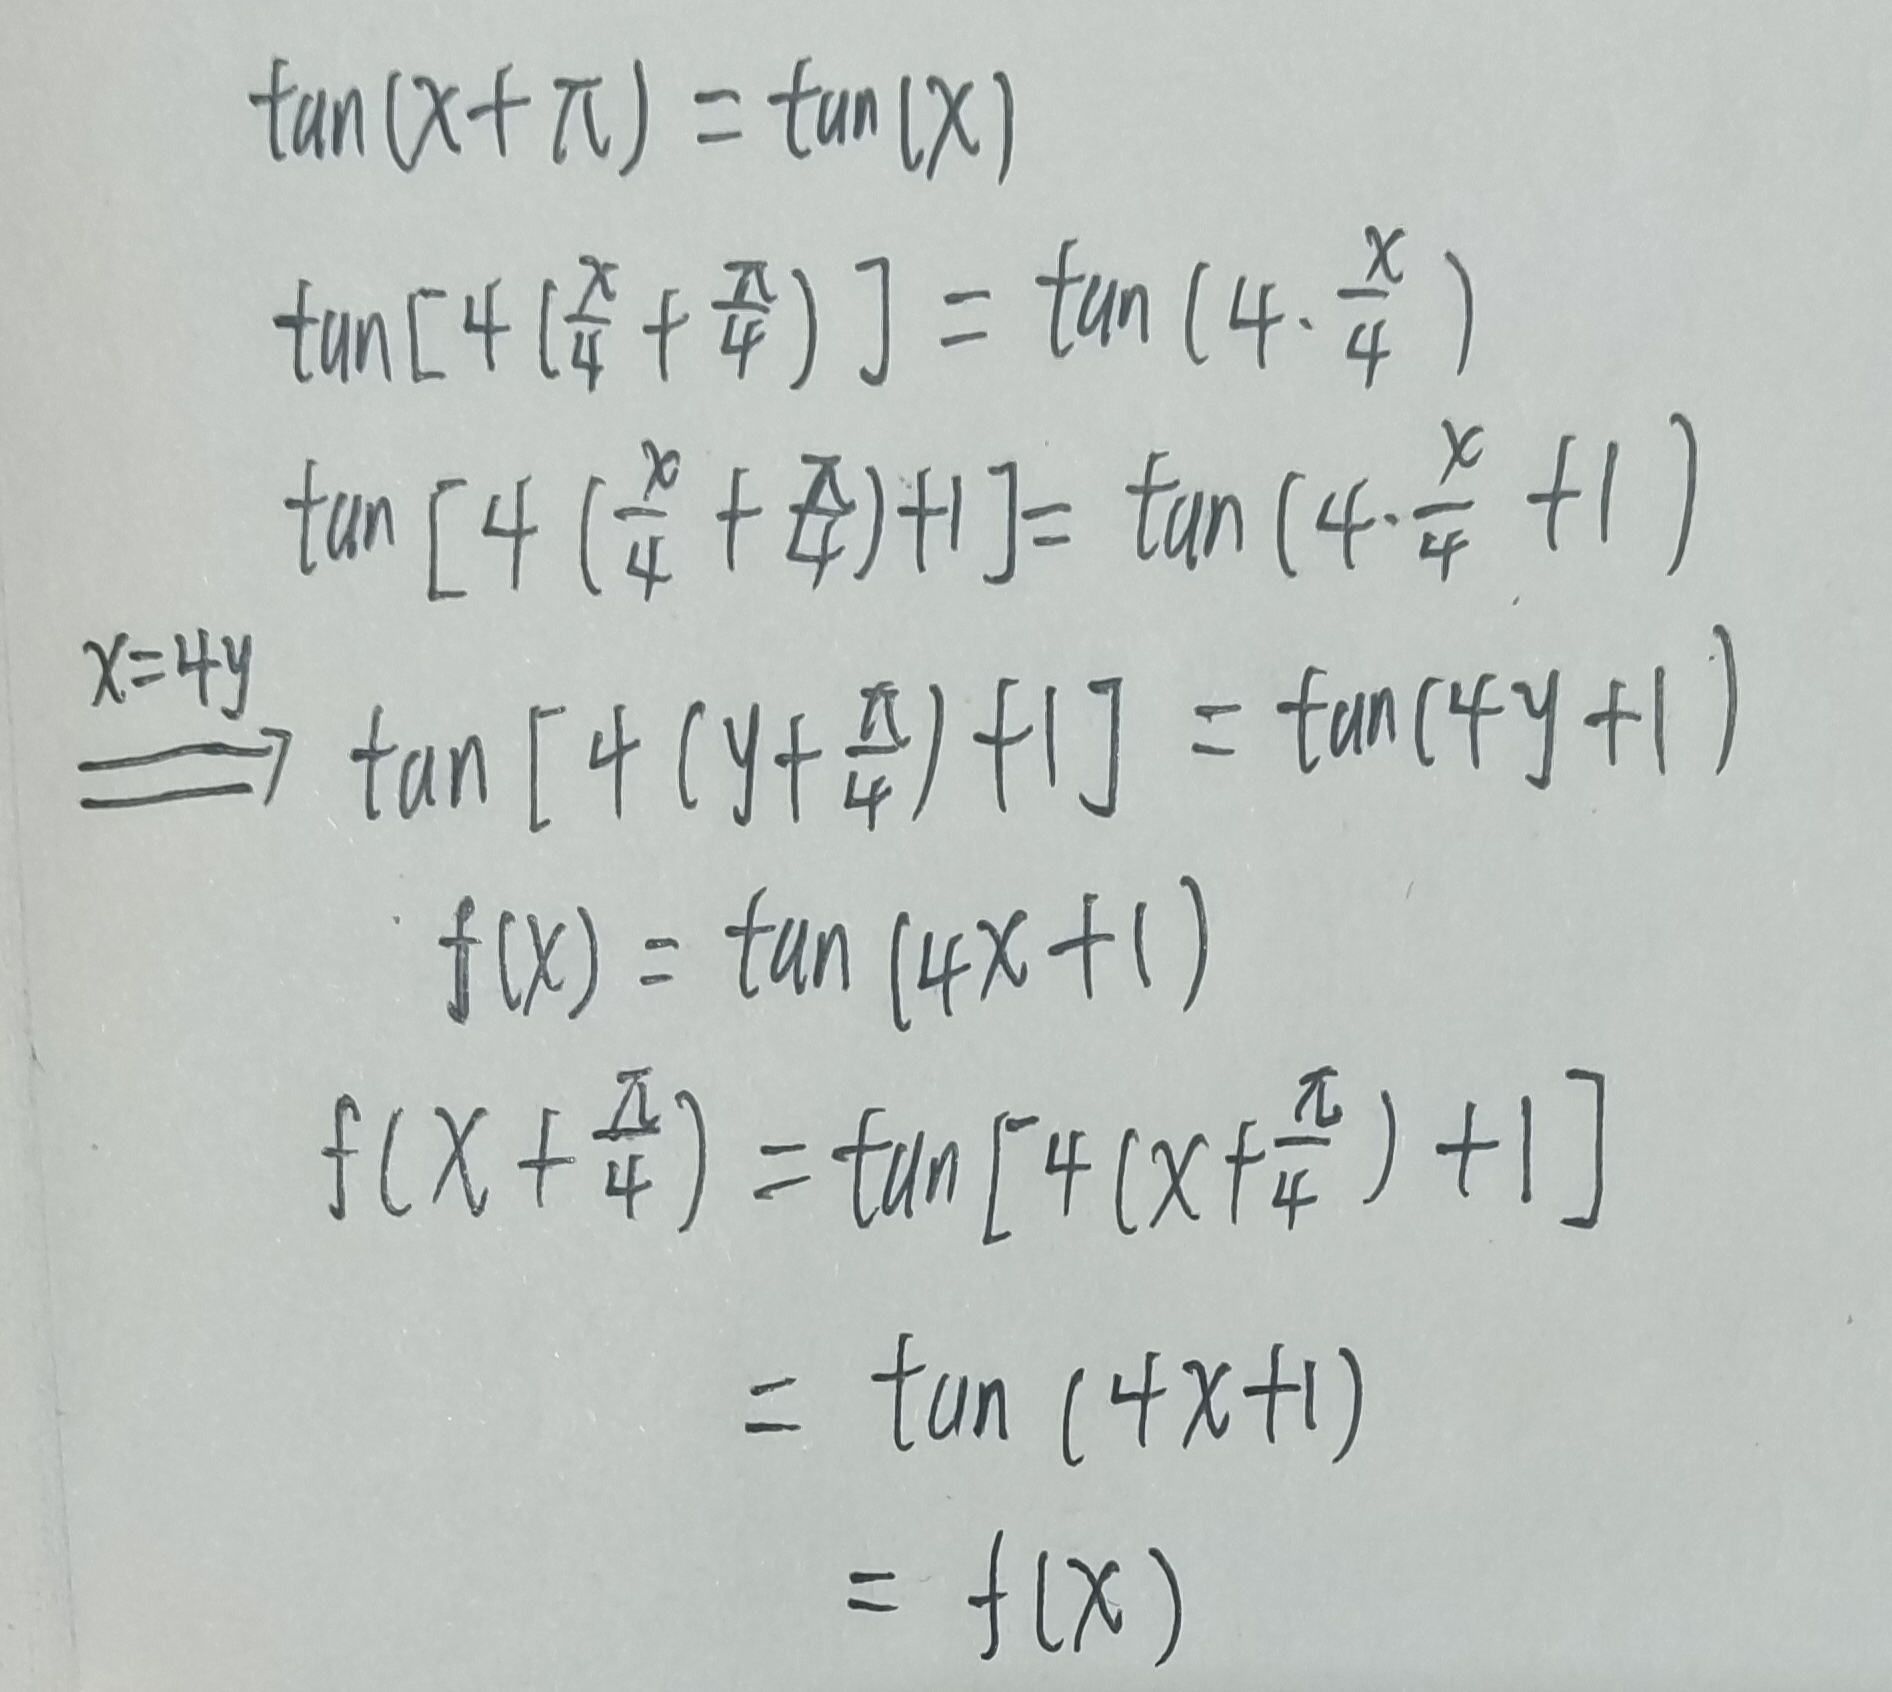 tan(x+π) = tan(x)
tan[4(x/4 + π/4)] = tan(4·x/4)
tan[4(x/4 + π/4)+1] = tan(4·x/4 +1)
x=4y ⟹ tan[4(y+π/4)+1] = tan(4y+1)
f(x) = tan(4x+1)
f(x+π/4) = tan[4(x+π/4)+1]
= tan(4x+1)
= f(x)